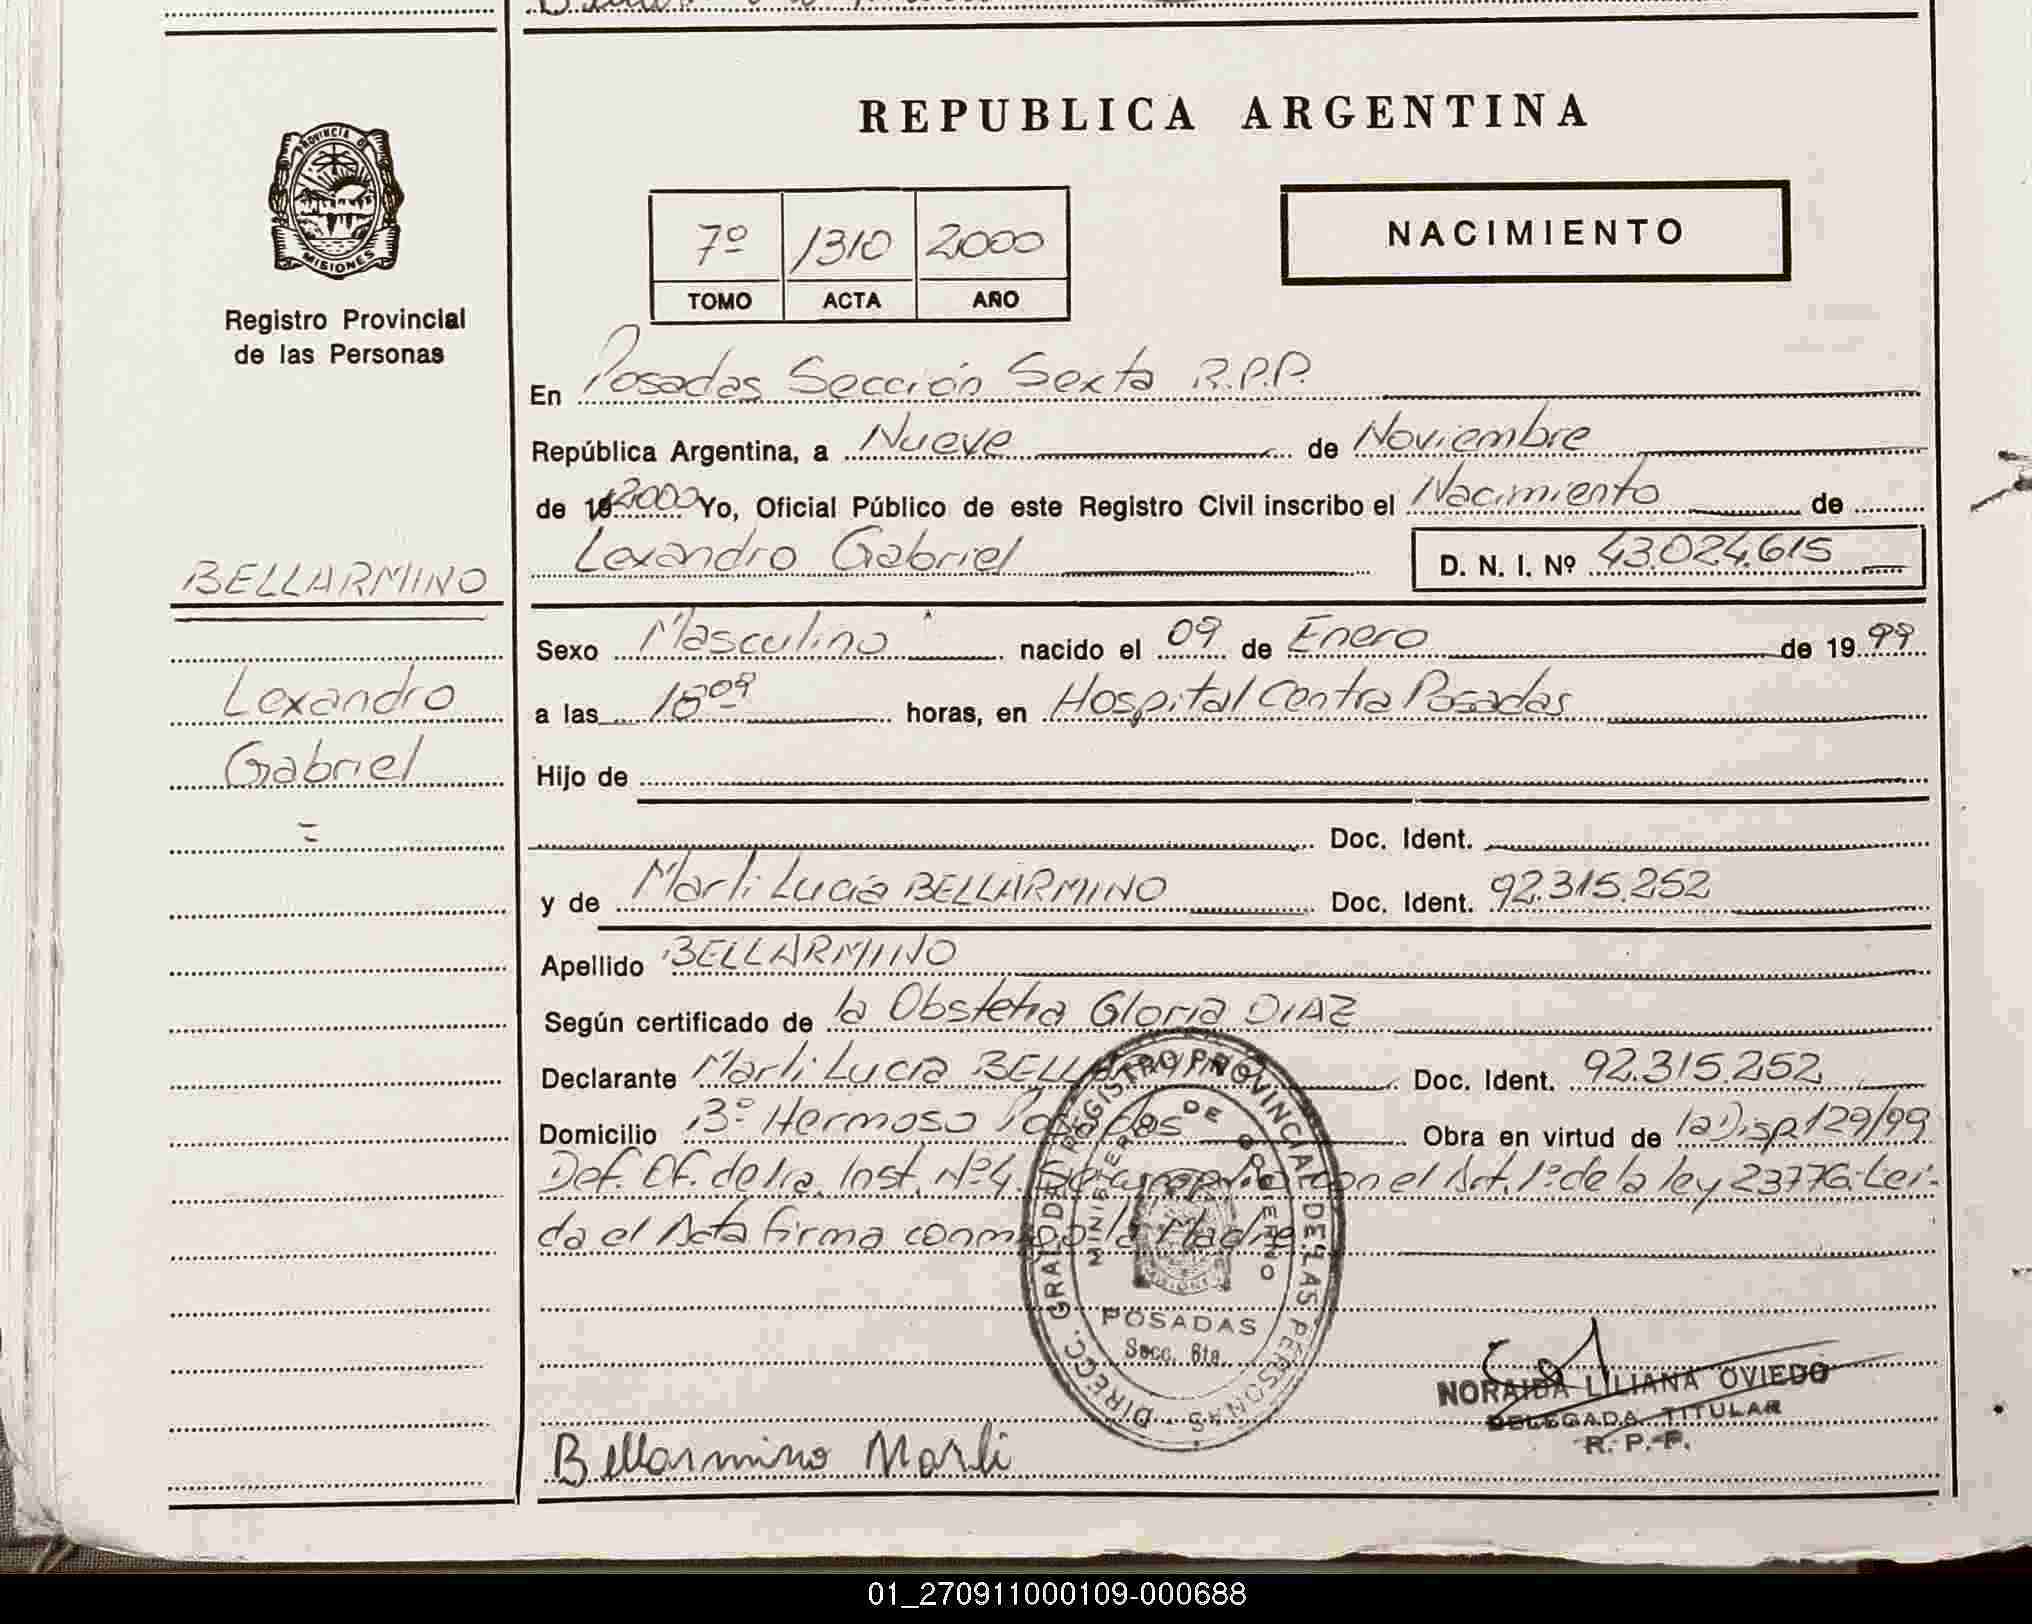 REPUBLICA ARGENTINA
PROVINCIA D
MISIONES
Registro Provincial
de las Personas
7º 1310 2000
TOMO ACTA AÑO
NACIMIENTO
En Posadas Sección Sexta R.P.P.
República Argentina, a Nueve de Noviembre
de 19 2000 Yo, Oficial Público de este Registro Civil inscribo el Nacimiento de
Lexandro Gabriel D. N. I. Nº 43.024.615
BELLARMINO
Lexandro
Gabriel
=
Sexo Masculino nacido el 09 de Enero de 19 99
a las horas, en Hospital Centra Posadas
Hijo de
Doc. Ident.
y de Marli Lucía BELLARMINO Doc. Ident. 92.315.252
Apellido BELLARMINO
Según certificado de la Obstetra Gloria DIAZ
Declarante Marli Lucía Doc. Ident. 92.315.252
Domicilio Bº Hermoso Posadas Obra en virtud de la Disp 129/99
Def. Of. de 1ra. Inst. Nº4. con el Art. 1º de la ley 23776. Lei-
da el Acta firma conmigo la Madre
DIRECC. GRAL. DEL REGISTRO PROVINCIAL DE LAS PERSONAS
MINISTERIO DE GOBIERNO
MISIONES
POSADAS
Secc. 6ta.
NORAIDA LILIANA OVIEDO
DELEGADA TITULAR
R. P. P.
Bellarmino Marli
01_270911000109-000688